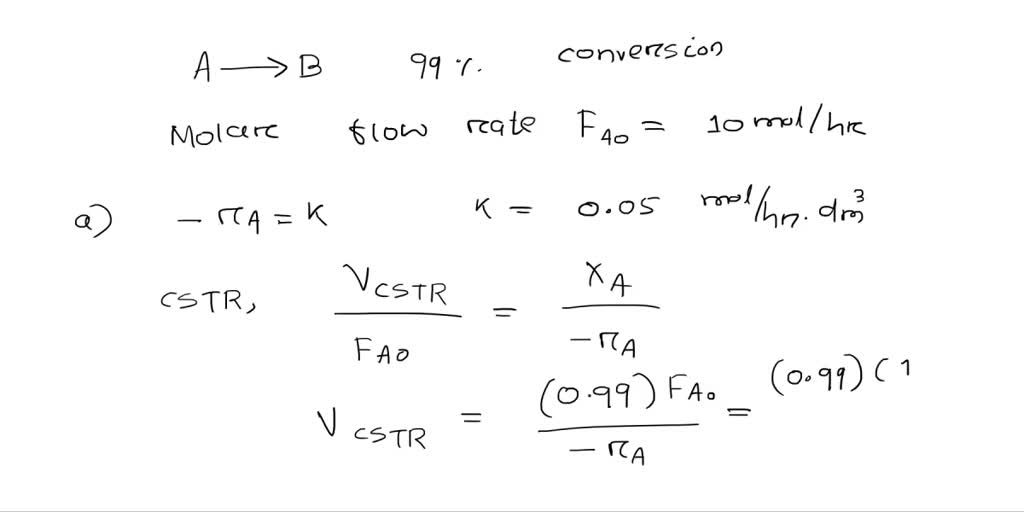 A ⟶ B 99 %. conversion
Molar flow rate F_A0 = 10 mol/hr
a) - r_A = K K = 0.05 mol/hr. dm³
CSTR, V_CSTR / F_A0 = X_A / - r_A
V_CSTR = (0.99) F_A0 / - r_A = (0.99) ( 1